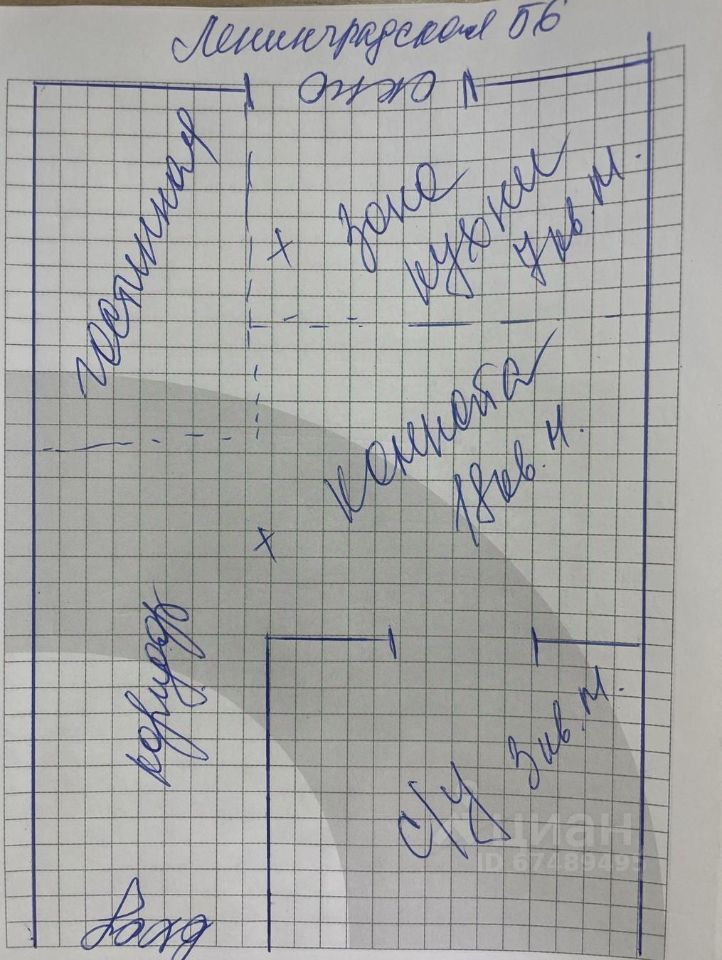 Ленинградская 56
окно
гостиная
зона
кухни
7 кв. м.
комната
18 кв. м.
коридор
с/у 3 кв. м.
Вход
циан
ID 67489495